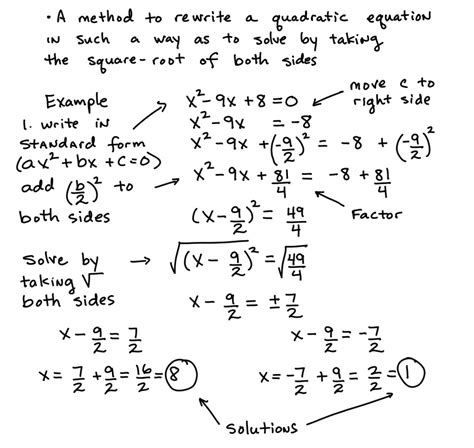 • A method to rewrite a quadratic equation
in such a way as to solve by taking
the square-root of both sides
Example
1. write in
standard form
(ax²+bx+c=0)
add (b/2)² to
both sides
x²-9x+8=0
move c to
right side
x²-9x = -8
x²-9x+(-9/2)² = -8 + (-9/2)²
x²-9x+81/4 = -8+81/4
(x-9/2)² = 49/4
Factor
Solve by
taking √
both sides
√(x-9/2)² = √49/4
x-9/2 = ±7/2
x-9/2 = 7/2
x = 7/2+9/2 = 16/2 = 8
x-9/2 = -7/2
x = -7/2+9/2 = 2/2 = 1
solutions